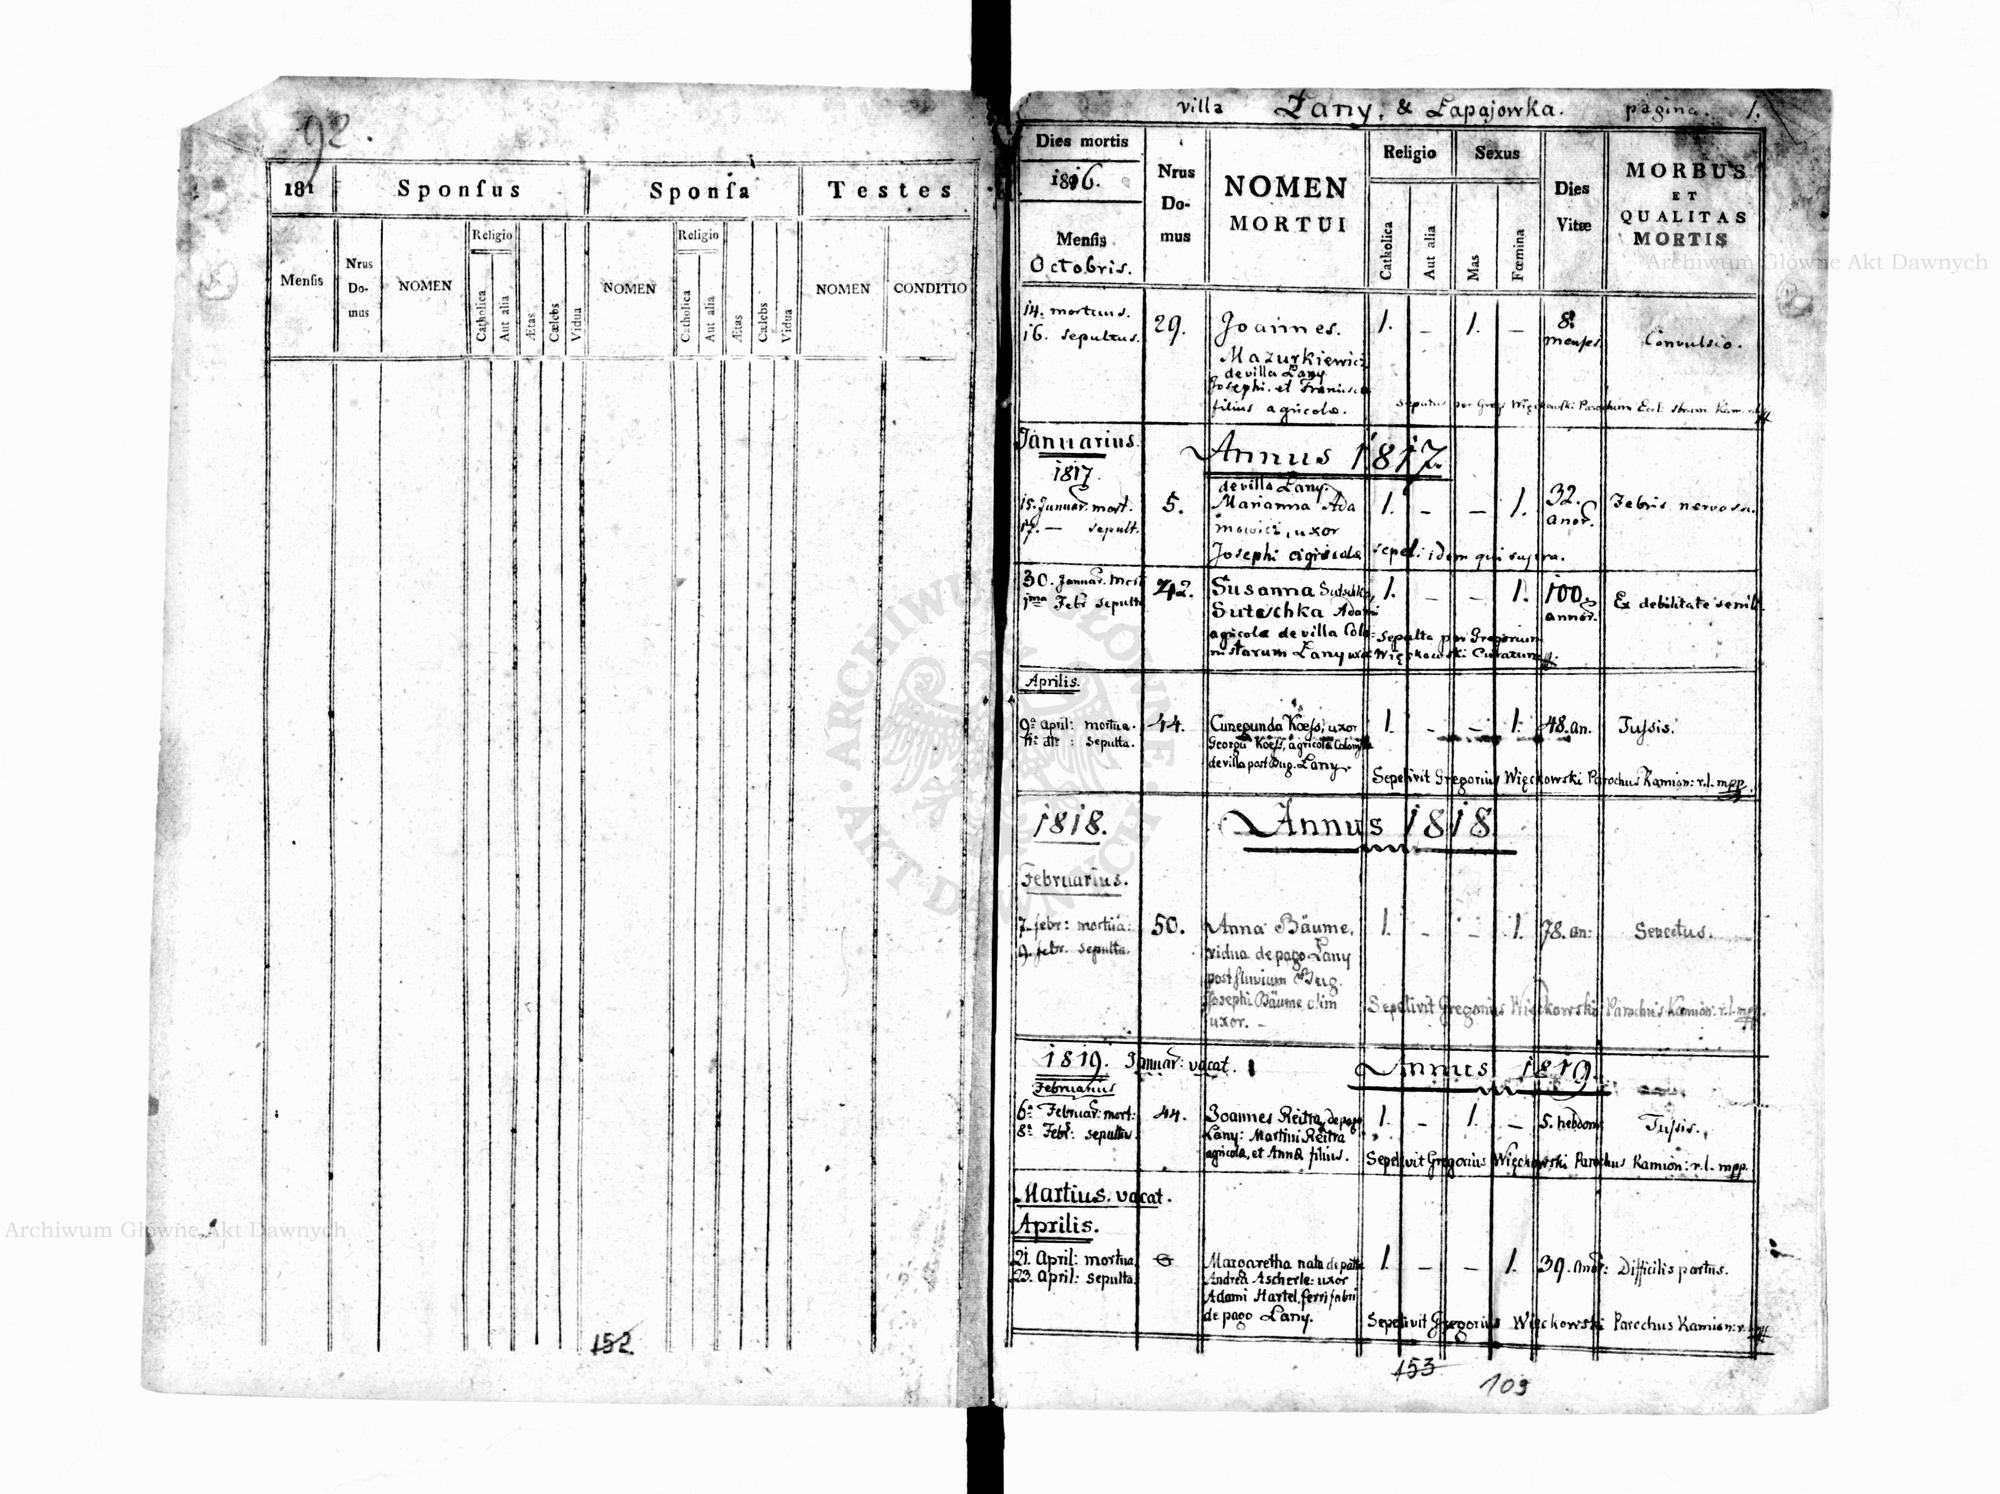 92.
181 Sponſus Sponſa Testes
Menſis Nrus Do- mus NOMEN Religio Catholica Aut alia Ætas Cælebs Vidua NOMEN Religio Catholica Aut alia Ætas Cælebs Vidua NOMEN CONDITIO
152
villa Łany, & Łapajowka. pagina. 1.
Dies mortis
1816.
Menſis
Octobris.
Nrus
Do-
mus
NOMEN
MORTUI
Religio
Catholica
Aut alia
Sexus
Mas
Fœmina
Dies
Vitæ
MORBUS
ET
QUALITAS
MORTIS
14. mortuus. 29. Joannes. 1. – 1. – 8.
16. sepultus. menses Convulsio.
Mazurkiewicz
de villa Łany
Josephi et Francisca
filius agricolæ.
Januarius. Annus 1817.
1817.
de villa Łany.
15. Januar. mort. 5. Marianna Ada 1. – – 1. 32. Febris nervosa.
17. — sepult. mowicz, uxor anor.
Josephi agricolæ sepel: idem qui supra.
30. Januar. mort 42. Susanna 1. – – 1. 100. Ex debilitate senili
1ma Febr sepulta Suteschka Adami annor.
agricolæ de villa Colo= sepulta per Gregorium
nistarum Łany uxor Więckowski Curatum
Aprilis.
9a April: mortua. 44. Cunegunda Koeſs, uxor 1. – – 1. 48. an. Tuſsis.
11a dto : sepulta. Georgii Koeſs, agricolæ Colonistæ
de villa post Bug. Łany.
Sepelivit Gregorius Więckowski Parochus Kamion: r.l. mpp.
1818. Annus 1818
Februarius.
7. febr: mortua: 50. Anna Bäume, 1. – – 1. 78. an: Senectus.
9. febr. sepulta. vidua de pago Łany
post fluvium Bug.
Josephi Bäume olim
uxor. –
Sepelivit Gregorius Więckowski Parochus Kamion: r.l. mpp.
1819. Januar: vacat. Annus 1819.
Februarius
6a Februar: mort: 44. Joannes Reitra, de pago 1. – 1. – 5. hebdom Tuſsis.
8a Febr: sepultus Łany: Martini Reitra
agricolæ, et Annæ filius. Sepelivit Gregorius Więckowski Parochus Kamion: r.l. mpp.
Martius. vacat.
Aprilis.
21. April: mortua Margaretha nata de patre 1. – – 1. 39. anor: Difficilis partus.
23. April: sepulta Andrea Ascherle: uxor
Adami Hartel, ferri fabri
de pago Łany.
Sepelivit Gregorius Więckowski Parochus Kamion: r.
153
109
Archiwum Główne Akt Dawnych
Archiwum Główne Akt Dawnych
ARCHIWUM GŁÓWNE AKT DAWNYCH